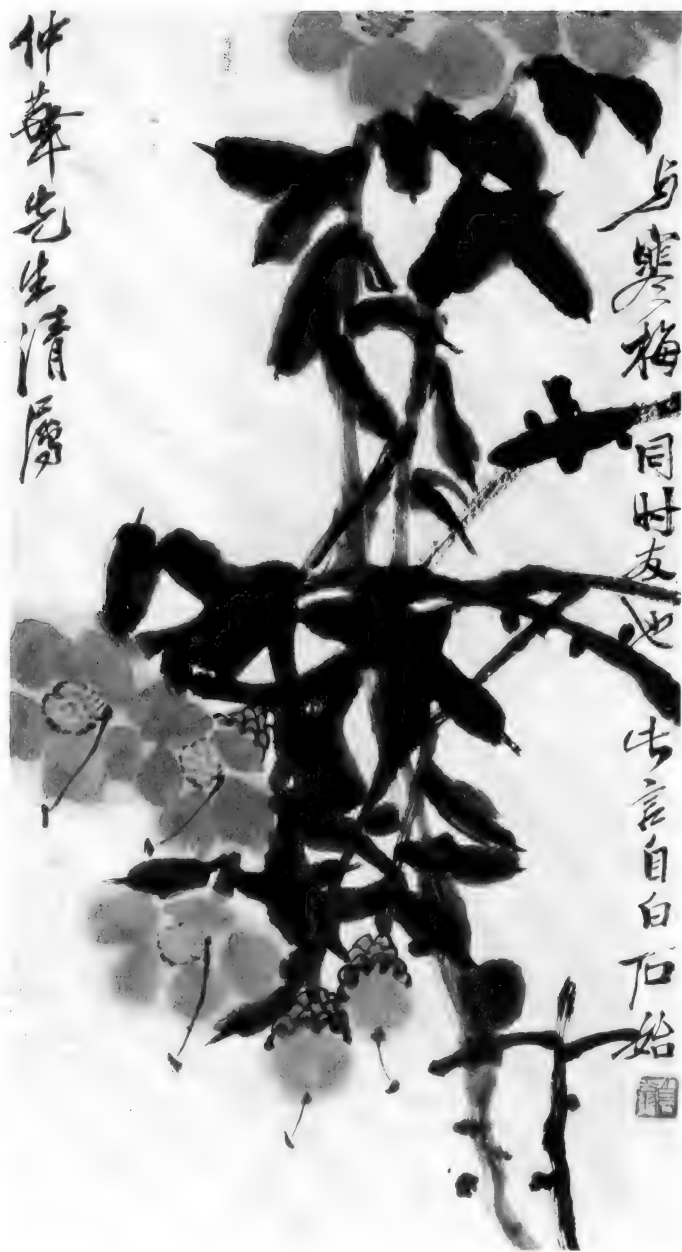 与寒梅同时友也 此言自白石始
仲華先生清属